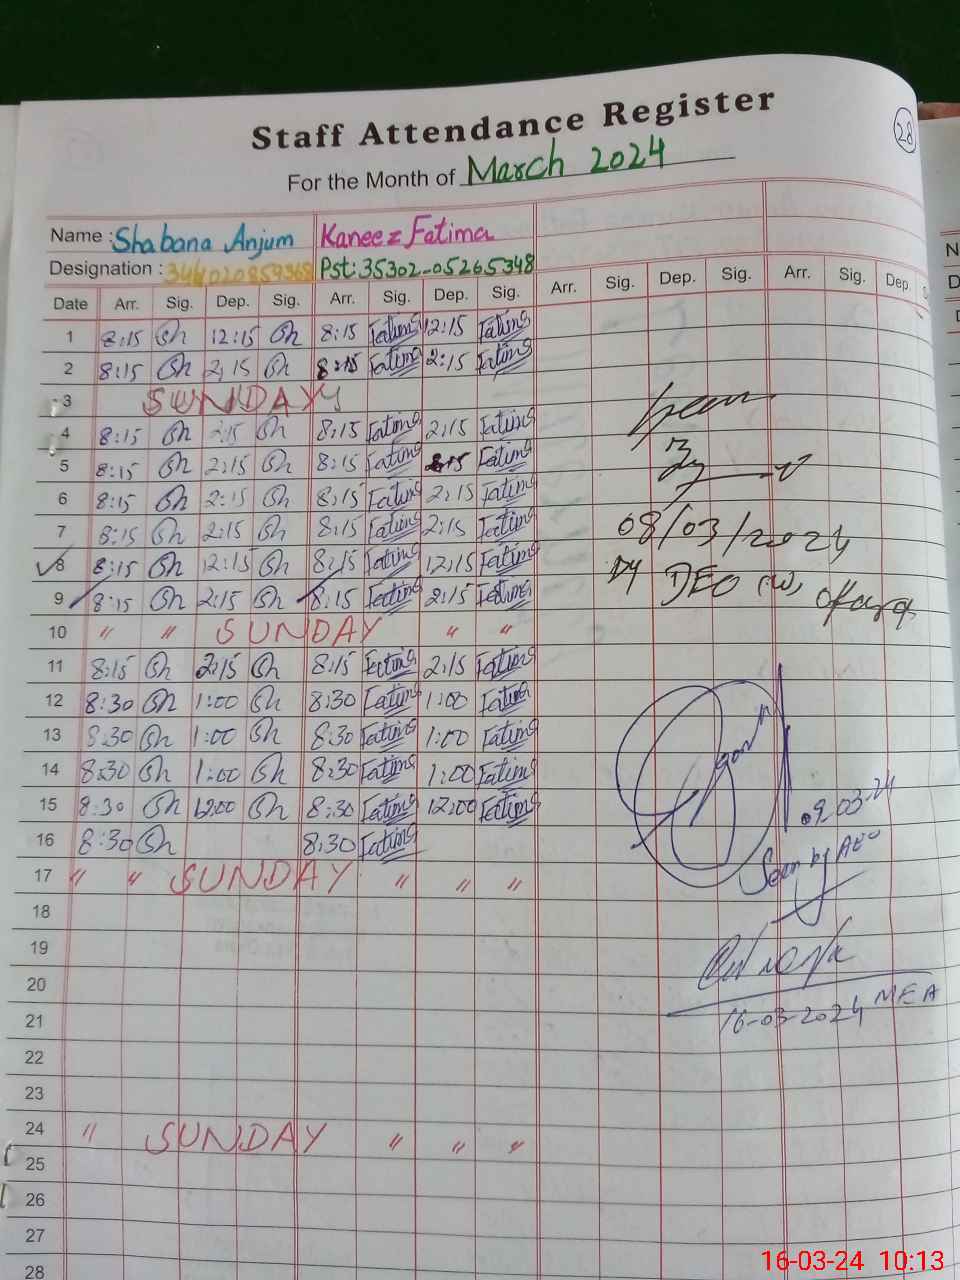 28
Staff Attendance Register
For the Month of March 2024
Name : Shabana Anjum Kaneez Fatima
Designation : Pst: 35302-05265348
Date Arr. Sig. Dep. Sig. Arr. Sig. Dep. Sig. Arr. Sig. Dep. Sig. Arr. Sig. Dep.
1 8:15 Sh 12:15 Sh 8:15 Fatima 12:15 Fatima
2 8:15 Sh 2:15 Sh 8:15 Fatima 2:15 Fatima
3 SUNDAY
4 8:15 Sh 2:15 Sh 8:15 Fatima 2:15 Fatima
5 8:15 Sh 2:15 Sh 8:15 Fatima Fatima
6 8:15 Sh 2:15 Sh 8:15 Fatima 2:15 Fatima
7 8:15 Sh 2:15 Sh 8:15 Fatima 2:15 Fatima
08/03/2024
8 8:15 Sh 12:15 Sh 8:15 Fatima 12:15 Fatima
Dy DEO (w)
9 8:15 Sh 2:15 Sh 8:15 Fatima 2:15 Fatima
10 " " SUNDAY " "
11 8:15 Sh 2:15 Sh 8:15 Fatima 2:15 Fatima
12 8:30 Sh 1:00 Sh 8:30 Fatima 1:00 Fatima
13 8:30 Sh 1:00 Sh 8:30 Fatima 1:00 Fatima
14 8:30 Sh 1:00 Sh 8:30 Fatima 1:00 Fatima
15 8:30 Sh 12:00 Sh 8:30 Fatima 12:00 Fatima
09.03.24
16 8:30 Sh 8:30 Fatima
Seen by AEO
17 " " SUNDAY " " "
18
19
20
21
16-03-2024 MEA
22
23
24 " SUNDAY " " "
25
26
27
28
16-03-24 10:13